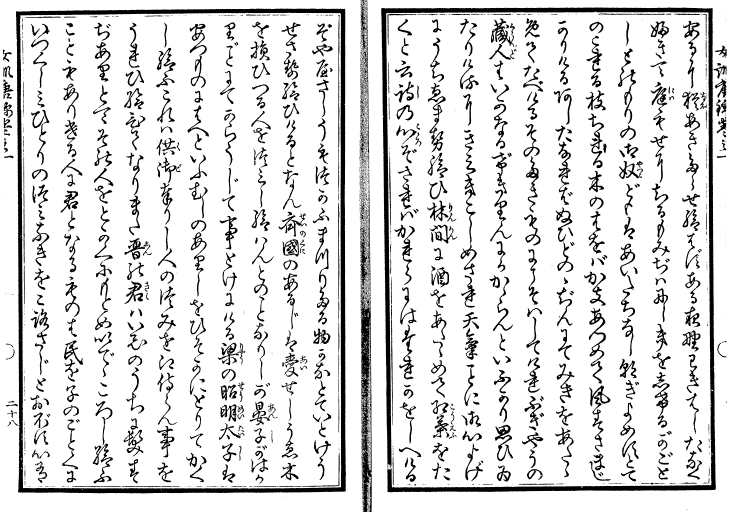 あるに猶あきたらせ給はずある夜野わきはしたなく
吹きて庭もせにちるもみぢはにしきをしきたるがごと
しとのもりの奴どもはあいたちなし朝ぎよめすとて
のこれる枝ちれる木のはをばかきあつめて風すさまじ
かりけるあしたなればぬひどのゝぢんにてみきをあたゝ
めてたべけるそのたきものにこそはしてけれぶぎやうの
蔵人はいかなるにかからんといふかり思ひゐ
たりけるにきこしめされ天氣ことに御心よげ
にうちゑませ給ひ林間に酒をあたゝめて紅葉をた
くと云詩の心をばそれらにはたれかをしへける
ぞややさしうもつかふまつりたる物かなとていとけう
せさせ給ひけるとなん齊國のあるじは愛せしうゑ木
を損ひつる人をつみし給はんとのことなりしが晏子がはか
りごとにてからうじて事とけにける梁の昭明太子は
あつものにはへといふむしのありしをひそかにとりてかく
し給ふこれは供御奉りし人のつみをえ侍らん事を
うれひ給ひてなりまた晉の君はいものうちに髮す
ぢありとてその人をとらへころし給ふ
こともありき人に君となるものは民を子のごとくに
いつくしみひとりのつみなきをころさじとおぼす心
二十八